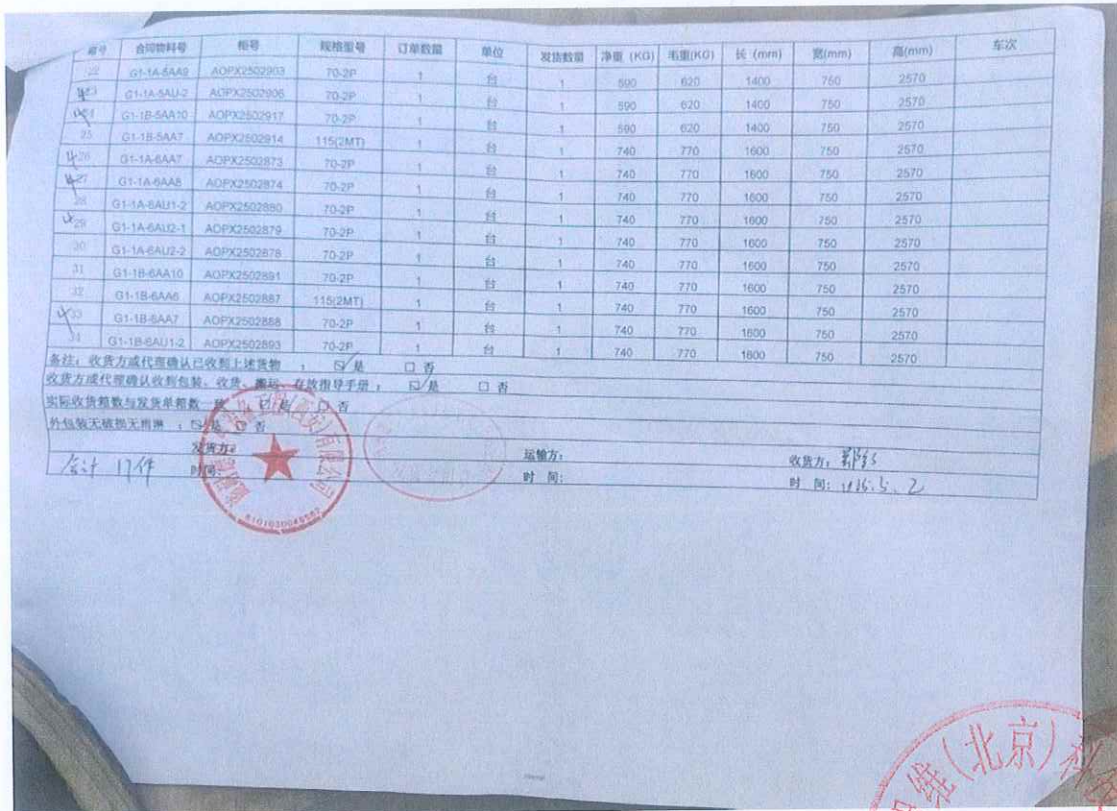 箱号 合同物料号 柜号 规格型号 订单数量 单位 发货数量 净重 (KG) 毛重(KG) 长 (mm) 宽(mm) 高(mm) 车次
22 G1-1A-5AA9 AOPX2502903 70-2P 1 台 1 590 620 1400 750 2570
23 G1-1A-5AU-2 AOPX2502906 70-2P 1 台 1 590 620 1400 750 2570
24 G1-1B-5AA10 AOPX2502917 70-2P 1 台 1 590 620 1400 750 2570
25 G1-1B-5AA7 AOPX2502914 115(2MT) 1 台 1 740 770 1600 750 2570
26 G1-1A-6AA7 AOPX2502873 70-2P 1 台 1 740 770 1600 750 2570
27 G1-1A-6AA8 AOPX2502874 70-2P 1 台 1 740 770 1600 750 2570
28 G1-1A-6AU1-2 AOPX2502880 70-2P 1 台 1 740 770 1600 750 2570
29 G1-1A-6AU2-1 AOPX2502879 70-2P 1 台 1 740 770 1600 750 2570
30 G1-1A-6AU2-2 AOPX2502878 70-2P 1 台 1 740 770 1600 750 2570
31 G1-1B-6AA10 AOPX2502891 70-2P 1 台 1 740 770 1600 750 2570
32 G1-1B-6AA6 AOPX2502887 115(2MT) 1 台 1 740 770 1600 750 2570
33 G1-1B-6AA7 AOPX2502888 70-2P 1 台 1 740 770 1600 750 2570
34 G1-1B-6AU1-2 AOPX2502893 70-2P 1 台 1 740 770 1600 750 2570
备注：收货方或代理确认已收到上述货物 ： ☑ 是 □ 否
收货方或代理确认收到包装、收货、搬运、存放指导手册： ☑ 是 □ 否
实际收货箱数与发货单箱数一致 ☑ 是 □ 否
外包装无破损无雨淋 ：☑ 是 □ 否
发货方： 运输方： 收货方：
合计 17件 时间： 时 间： 时 间：
6101030049562
维(北京)科